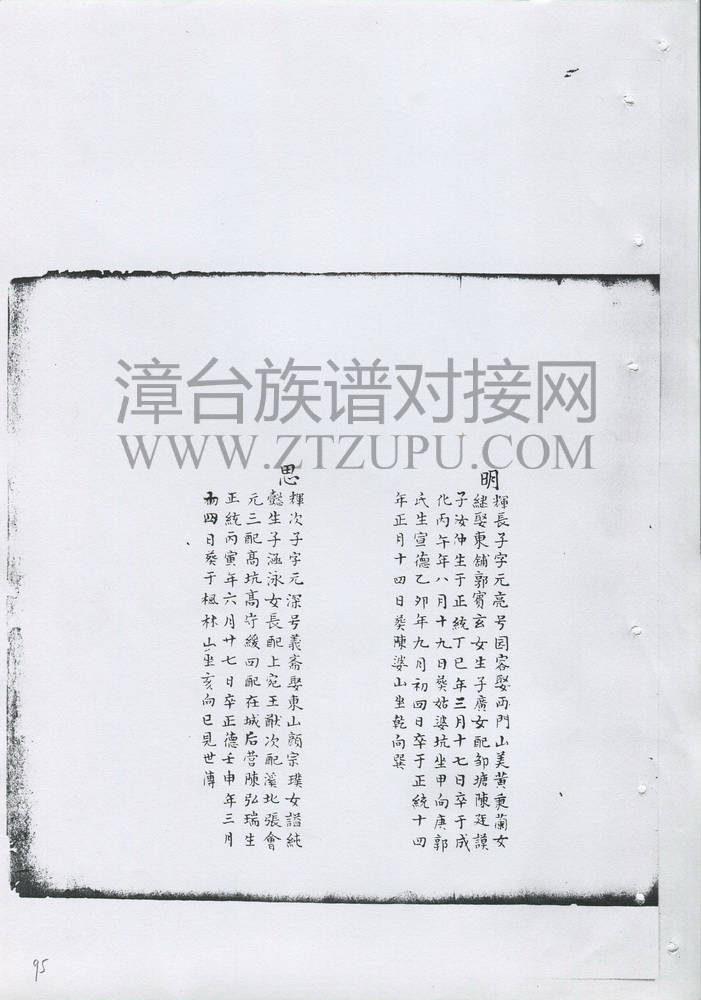 漳台族谱对接网
WWW.ZTZUPU.COM
明
輝長子字元亮号园容娶西門山美黄秉蘭女
継娶東舖郭賓玄女生子廣女配邹塘陳廷謨
子汝仲生于正統丁巳年三月十七日卒于成
化丙午年八月十九日葵姑婆坑坐甲向庚郭
氏生宣德乙卯年九月初四日卒于正統十四
年正月十四日葵陳婆山坐乾向巽
思
輝次子字元深号義斋娶東山顔宗璞女諡純
懿生子涵泳女長配上宛王猷次配溪北張會
元三配高坑高守緩四配在城后营陳弘瑞生
正統丙寅年六月廿七日卒正德壬申年三月
四日葵于楓林山坐亥向巳見世傳
95